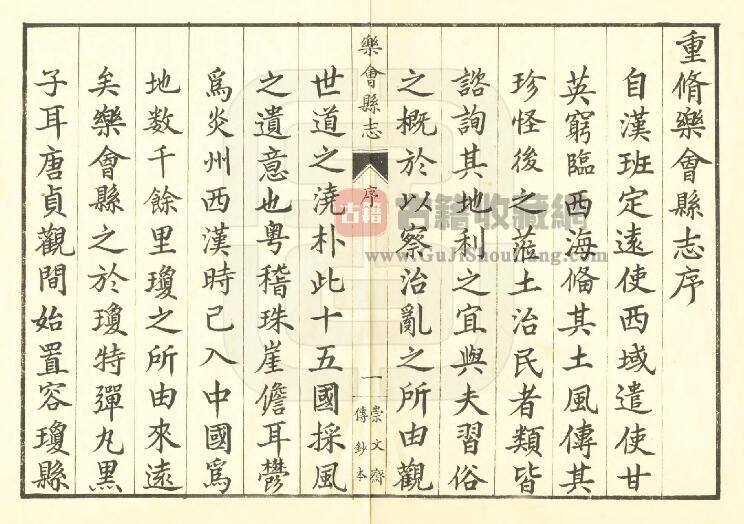 重脩樂會縣志序
自漢班定遠使西域遣使甘
英窮臨西海俻其土風傳其
珍怪後之蒞土治民者類皆
諮詢其地利之宜與夫習俗
之概於以察治亂之所由觀
樂會縣志
序
一
崇文齋
傳鈔本
世道之澆朴此十五國採風
之遺意也粤稽珠崖儋耳鬱
爲炎州西漢時已入中國爲
地数千餘里瓊之所由來遠
矣樂會縣之於瓊特彈丸黑
子耳唐貞觀間始置容瓊縣
古籍
古籍收藏網
www.GuJiShouCang.com